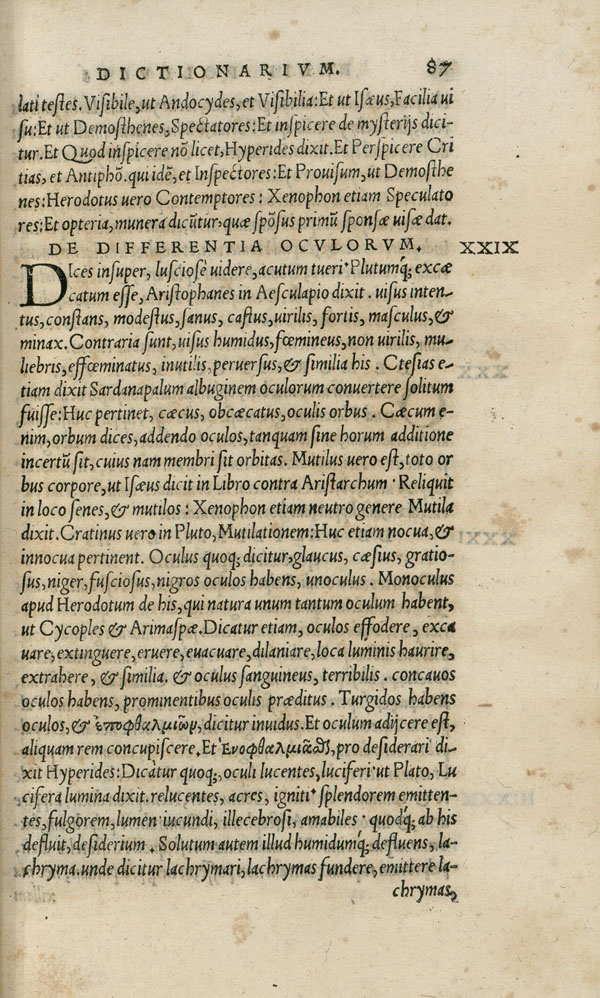 DICTIONARIVM. 87
lati testes. Visibile, ut Andocydes, et Visibilia: Et ut Isæus, Facilia ui
su: Et ut Demosthenes, Spectatores: Et inspicere de mysterijs dici-
tur. Et Quod inspicere nõ licet, Hyperides dixit. Et Perspicere Cri
tias, et Antiphõ. qui idẽ, et Inspectores: Et Prouisum, ut Demosthe
nes: Herodotus uero Contemptores: Xenophon etiam Speculato
res: Et opteria, munera dicũtur, quæ spõsus primũ sponsæ uisæ dat.
DE DIFFERENTIA OCVLORVM. XXIX
DIces insuper, lusciosè uidere, acutum tueri. Plutumq́;, excæ
catum esse, Aristophanes in Aesculapio dixit. uisus inten-
tus, constans, modestus, sanus, castus, uirilis, fortis, masculus, &
minax. Contraria sunt, uisus humidus, fœmineus, non uirilis, mu-
liebris, effœminatus, inutilis, peruersus, & similia his. Ctesias e-
tiam dixit Sardanapalum albuginem oculorum conuertere solitum
fuisse: Huc pertinet, cæcus, obcæcatus, oculis orbus. Cæcum e-
nim, orbum dices, addendo oculos, tanquam sine horum additione
incertũ sit, cuius nam membri sit orbitas. Mutilus uero est, toto or
bus corpore, ut Isæus dicit in Libro contra Aristarchum. Reliquit
in loco senes, & mutilos: Xenophon etiam neutro genere Mutila
dixit. Cratinus uero in Pluto, Mutilationem: Huc etiam nocua, &
innocua pertinent. Oculus quoq; dicitur, glaucus, cæsius, gratio-
sus, niger, fusciosus, nigros oculos habens, unoculus. Monoculus
apud Herodotum de his, qui natura unum tantum oculum habent,
ut Cycoples & Arimaspæ. Dicatur etiam, oculos effodere, exca
uare, extinguere, eruere, euacuare, dilaniare, loca luminis haurire,
extrahere, & similia. & oculus sanguineus, terribilis. concauos
oculos habens, prominentibus oculis præditus. Turgidos habens
oculos, & ἐποφθαλμιῶν, dicitur inuidus. Et oculum adijcere est,
aliquam rem concupiscere. Et pro desiderari di-
xit Hyperides: Dicatur quoq;, oculi lucentes, luciferi ut Plato, Lu
cifera lumina dixit. relucentes, acres, igniti. splendorem emitten-
tes, fulgorem, lumen iucundi, illecebrosi, amabiles. quodq́; ab his
defluit, desiderium. Solutum autem illud humidumq́; defluens, la-
chryma. unde dicitur lachrymari, lachrymas fundere, emittere la-
chrymas,